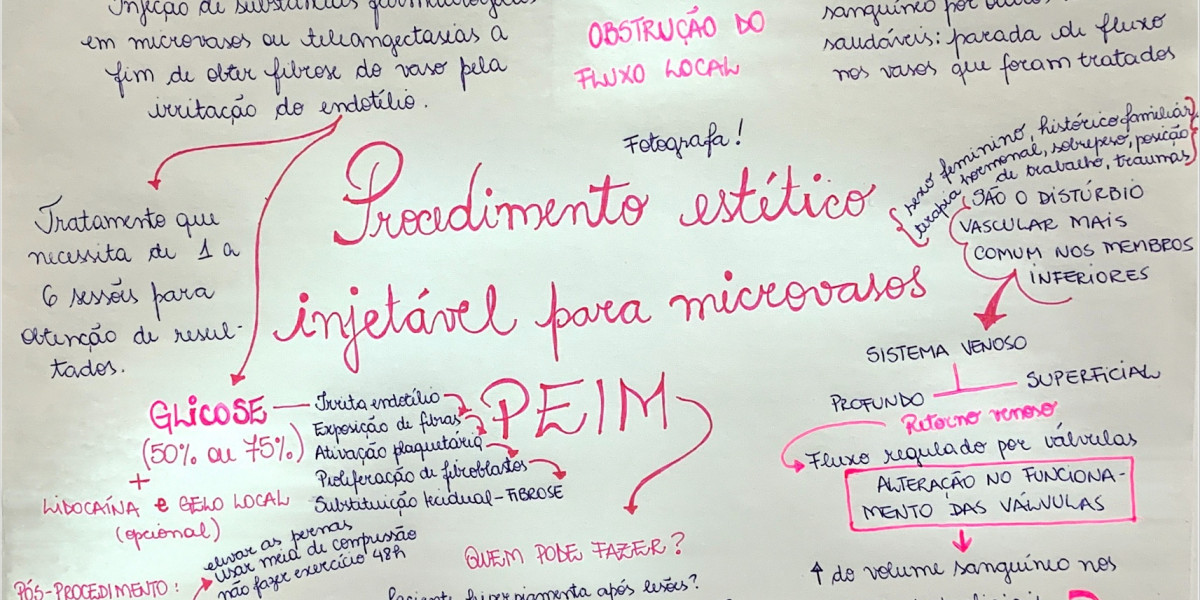 Injeção de substâncias farmacológicas
em microvasos ou teleangectasias a
fim de obter fibrose do vaso pela
irritação do endotélio.
OBSTRUÇÃO DO
FLUXO LOCAL
sanguíneo por
saudáveis: parada de fluxo
nos vasos que foram tratados
Fotografa!
Procedimento estético
injetável para microvasos
PEIM
Tratamento que
necessita de 1 a
6 sessões para
obtenção de resul-
tados.
sexo feminino, histórico familiar,
terapia hormonal, sobrepeso, posição
de trabalho, traumas
SÃO O DISTÚRBIO
VASCULAR MAIS
COMUM NOS MEMBROS
INFERIORES
SISTEMA VENOSO
SUPERFICIAL
PROFUNDO
Retorno venoso
Fluxo regulado por válvulas
ALTERAÇÃO NO FUNCIONA-
MENTO DAS VÁLVULAS
↑ do volume sanguíneo nos
GLICOSE
(50% ou 75%)
+
LIDOCAÍNA e GELO LOCAL
(opcional)
Irrita endotélio
Exposição de fibras
Ativação plaquetária
Proliferação de fibroblastos
Substituição tecidual - FIBROSE
PÓS-PROCEDIMENTO:
elevar as pernas
usar meia de compressão
não fazer exercício 48h
QUEM PODE FAZER?
Paciente hiperpigmenta após lesões?